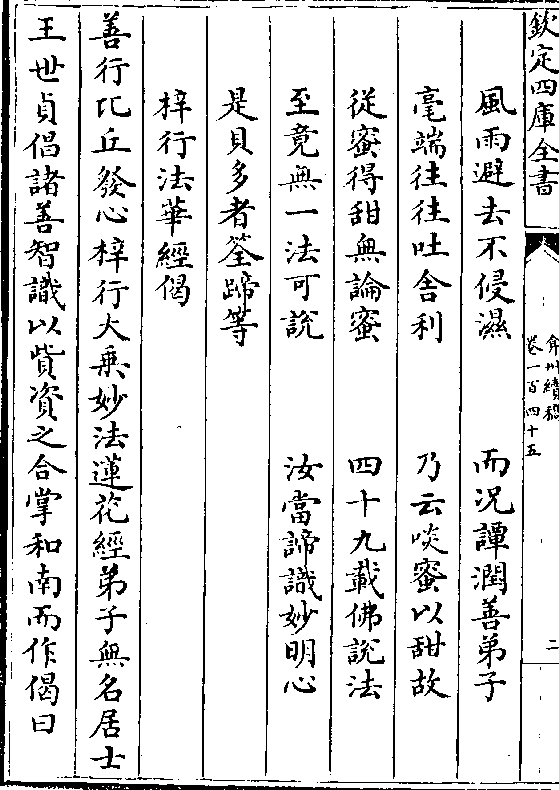 欽定四庫全書
弇州續稿
卷一百四十五
二
風雨避去不侵濕 而况譚潤善弟子
毫端往往吐舍利 乃云啖蜜以甜故
從蜜得甜無論蜜 四十九載佛説法
至竟無一法可説 汝當諦識妙明心
是貝多者筌蹄等
梓行法華經偈
善行比丘發心梓行大乗妙法蓮花經弟子無名居士
王世貞倡諸善智識以貲資之合掌和南而作偈曰